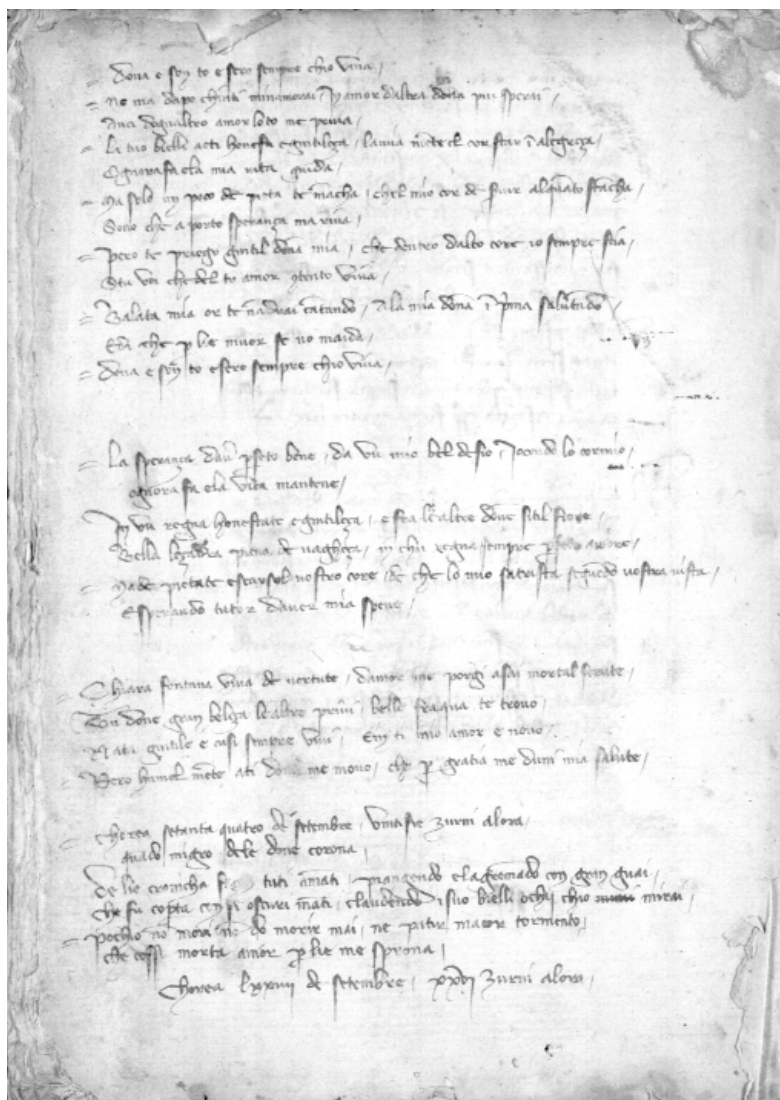 Dona e son to e sero sempre chio viva
No ma dapo chinti minamorai / In amor daltra dona piu sperai
Anci dognaltro amor loto me priva
Li tuo bielli acti honesta e gintileça / la mia mēte el cor star ī alegreça
Ognora fa ela mia vita guida
Ma solo un poco de pieta te mācha / chel mio cor de
Sono che a porto sperança ma riva
Pero te priego gintil dōna mia / che dentro dalto core io sempre stia
Stu voi che del to amor 9tento viva
Balata mia or te nādrai cātando / Ala mia dōna ī p̄ma salutādo
che p lie muor se no maida
Dona e son to e sero sempre chio viva
La sperança daū pfeto bene / da vu mio bel desio / Jocondo lo cormio
ognora fa ela vita mantene
In vu regna honestate e gintileça / e fra le altre done sitil fiore
Bella leçadra piena de vagheça / in chui regna sempre amore
Ma de pietate escarsol vostro core / de che lo mio satrista seguēdo vostra vista
E sperando tutor daver mia spene
Chiara fontana viva de vertute / damor me porgi asai mortal ferute
Tu done gran beleça le altre privi / belle fraqua te trovo
gintile e casi sempre vivi / En ti mio amor e novo
Pero humel mēte ati dōna me movo / che p gratia me doni mia salute
Chorea setanta quatro de setembre / vintisie zurni alora
quādo migro dele done corona
De lie cronicha tuti amāti / piangendo e lagremādo con gran guai
che fu coperta con si oscuri māti / claudendo i suo bielli ochi chio mirai
Pochio no mora no do morir mai / ne patir maior tormento
che cossi morta amor p lie me sprona
Chorea lxxiiii de setembre / xxvi zurni alora